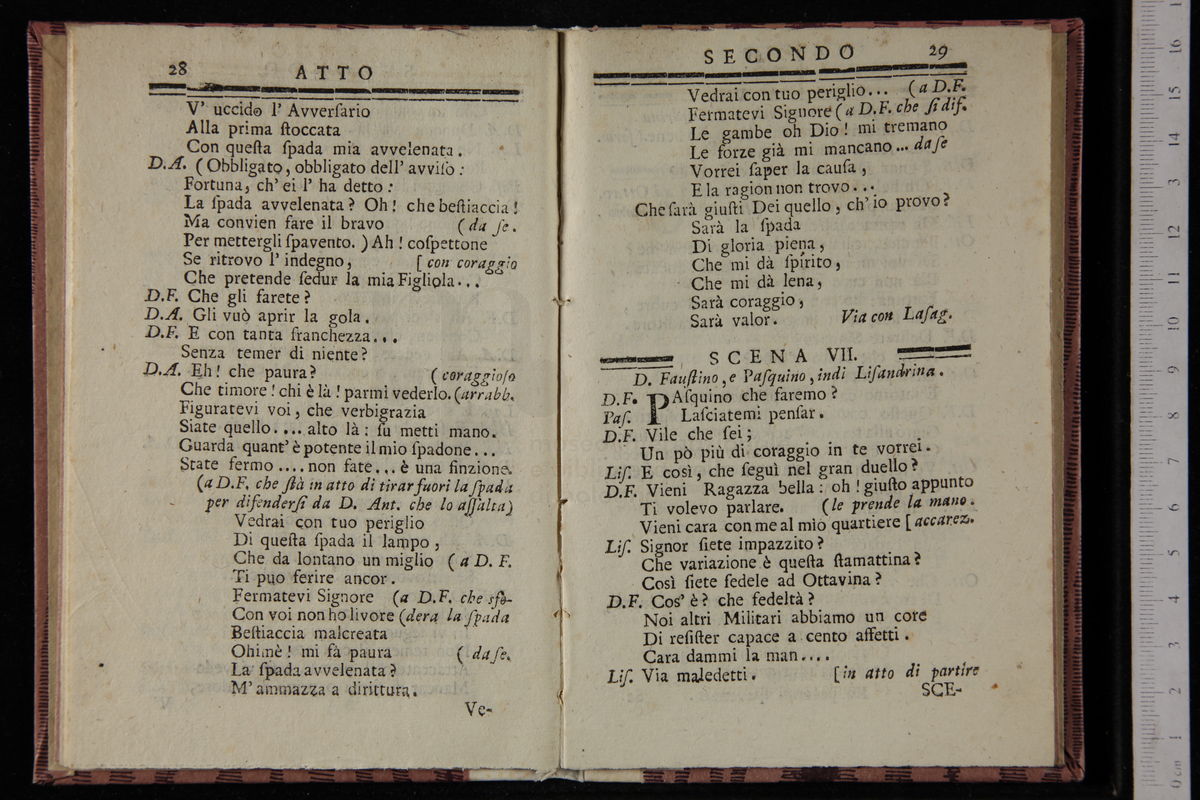 28 ATTO
V' uccido l' Avverſario
Alla prima ſtoccata
Con queſta ſpada mia avvelenata.
D.A. (Obbligato, obbligato dell' avviſo:
Fortuna, ch' ei l' ha detto:
La ſpada avvelenata? Oh! che beſtiaccia!
Ma convien fare il bravo (da ſe.
Per mettergli ſpavento.) Ah! coſpettone
Se ritrovo l' indegno, [con coraggio
Che pretende ſedur la mia Figliola...
D.F. Che gli farete?
D.A. Gli vuò aprir la gola.
D.F. E con tanta franchezza...
Senza temer di niente?
D.A. Eh! che paura? (coraggioſo
Che timore! chi è là! parmi vederlo. (arrabb.
Figuratevi voi, che verbigrazia
Siate quello.... alto là: ſu metti mano.
Guarda quant' è potente il mio ſpadone...
State fermo.... non fate... è una finzione.
(a D.F. che ſtà in atto di tirar fuori la ſpada
per difenderſi da D. Ant. che lo aſſalta)
Vedrai con tuo periglio
Di queſta ſpada il lampo,
Che da lontano un miglio (a D. F.
Ti puo ferire ancor.
Fermatevi Signore (a D.F. che sfo-
Con voi non ho livore (dera la ſpada
Beſtiaccia malcreata
Ohimè! mi fà paura (da ſe.
La ſpada avvelenata?
M' ammazza a dirittura.
Ve-
SECONDO 29
Vedrai con tuo periglio... (a D.F.
Fermatevi Signore (a D.F. che ſi dif.
Le gambe oh Dio! mi tremano
Le forze già mi mancano... da ſe
Vorrei ſaper la cauſa,
E la ragion non trovo...
Che ſarà giuſti Dei quello, ch' io provo?
Sarà la ſpada
Di gloria piena,
Che mi dà ſpirito,
Che mi dà lena,
Sarà coraggio,
Sarà valor. Via con Laſag.
SCENA VII.
D. Fauſtino, e Paſquino, indi Liſandrina.
D.F. PAſquino che faremo?
Paſ. Laſciatemi penſar.
D.F. Vile che ſei;
Un pò più di coraggio in te vorrei.
Liſ. E così, che ſeguì nel gran duello?
D.F. Vieni Ragazza bella: oh! giuſto appunto
Ti volevo parlare. (le prende la mano.
Vieni cara con me al mio quartiere [accarez.
Liſ. Signor ſiete impazzito?
Che variazione è queſta ſtamattina?
Così ſiete fedele ad Ottavina?
D.F. Cos' è? che fedeltà?
Noi altri Militari abbiamo un core
Di reſiſter capace a cento affetti.
Cara dammi la man....
Liſ. Via maledetti. [in atto di partire
SCE-